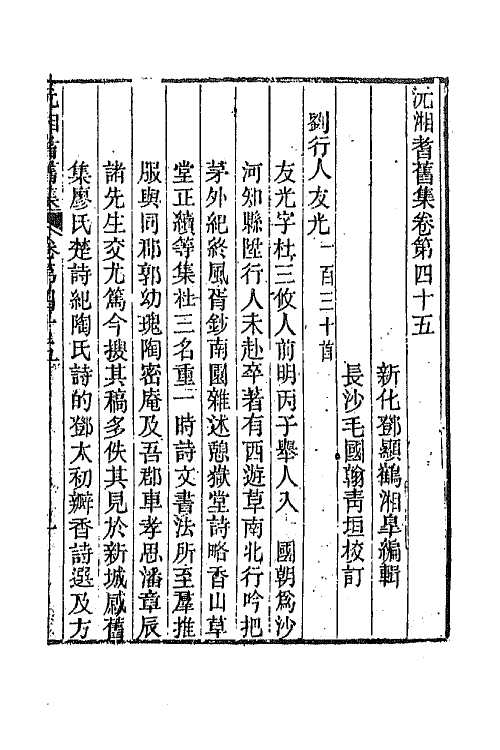 沅湘耆舊集卷第四十五
新化鄧顯鶴湘皐編輯
長沙毛國翰靑垣校訂
劉行人友光一百三十首
友光字杜三攸人前明丙子舉人入　國朝爲沙
河知縣陞行人未赴卒著有西遊草南北行吟把
茅外紀終風胥鈔南園雜述憩嶽堂詩略香山草
堂正續等集杜三名重一時詩文書法所至羣推
服與同郡郭幼瑰陶密庵及吾郡車孝思潘章辰
諸先生交尤篤今搜其稿多佚其見於新城感舊
集廖氏楚詩紀陶氏詩的鄧太初瓣香詩選及方
沅湘耆舊集　卷第四十五